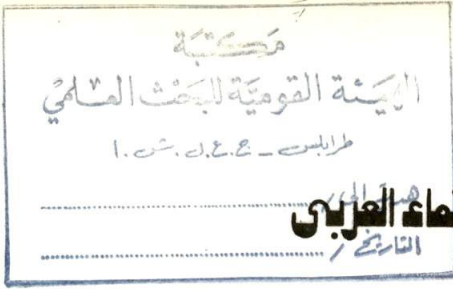 مكتبة
الهيئة القومية للبحث العلمي
طرابلس - ج.ع.ل.ش.ا
هدية الى /
ماء العربى
التاريخ /